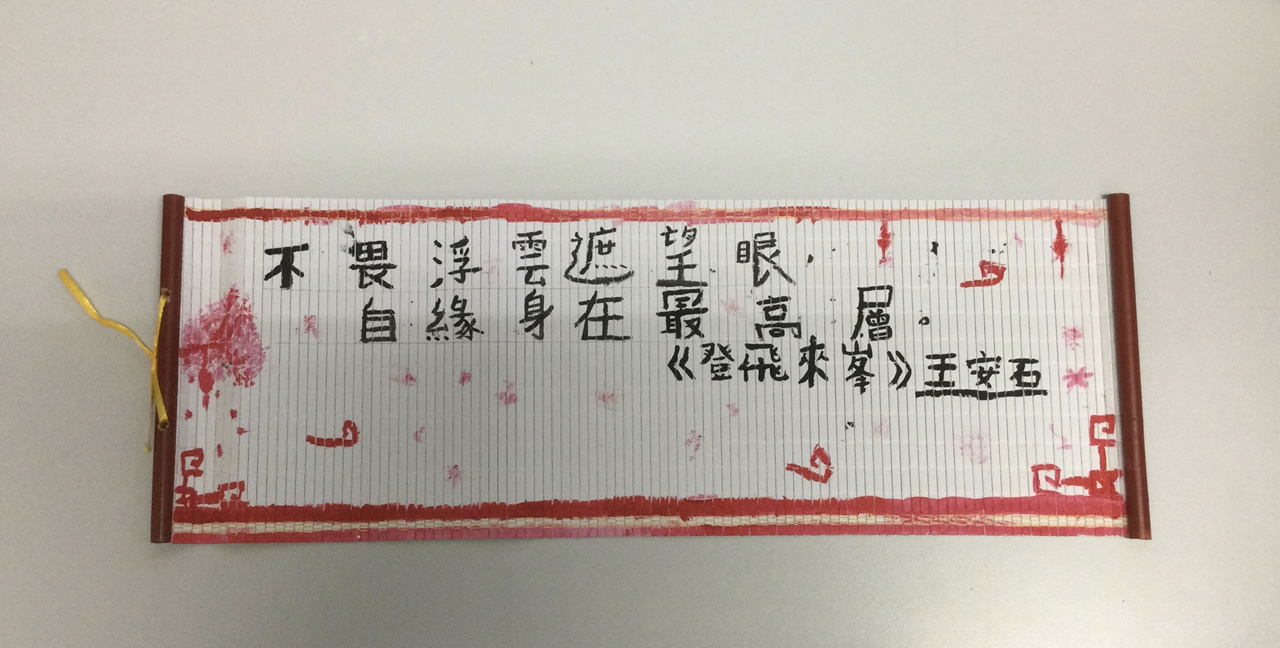 不畏浮雲遮望眼，
自緣身在最高層。
《登飛來峯》王安石